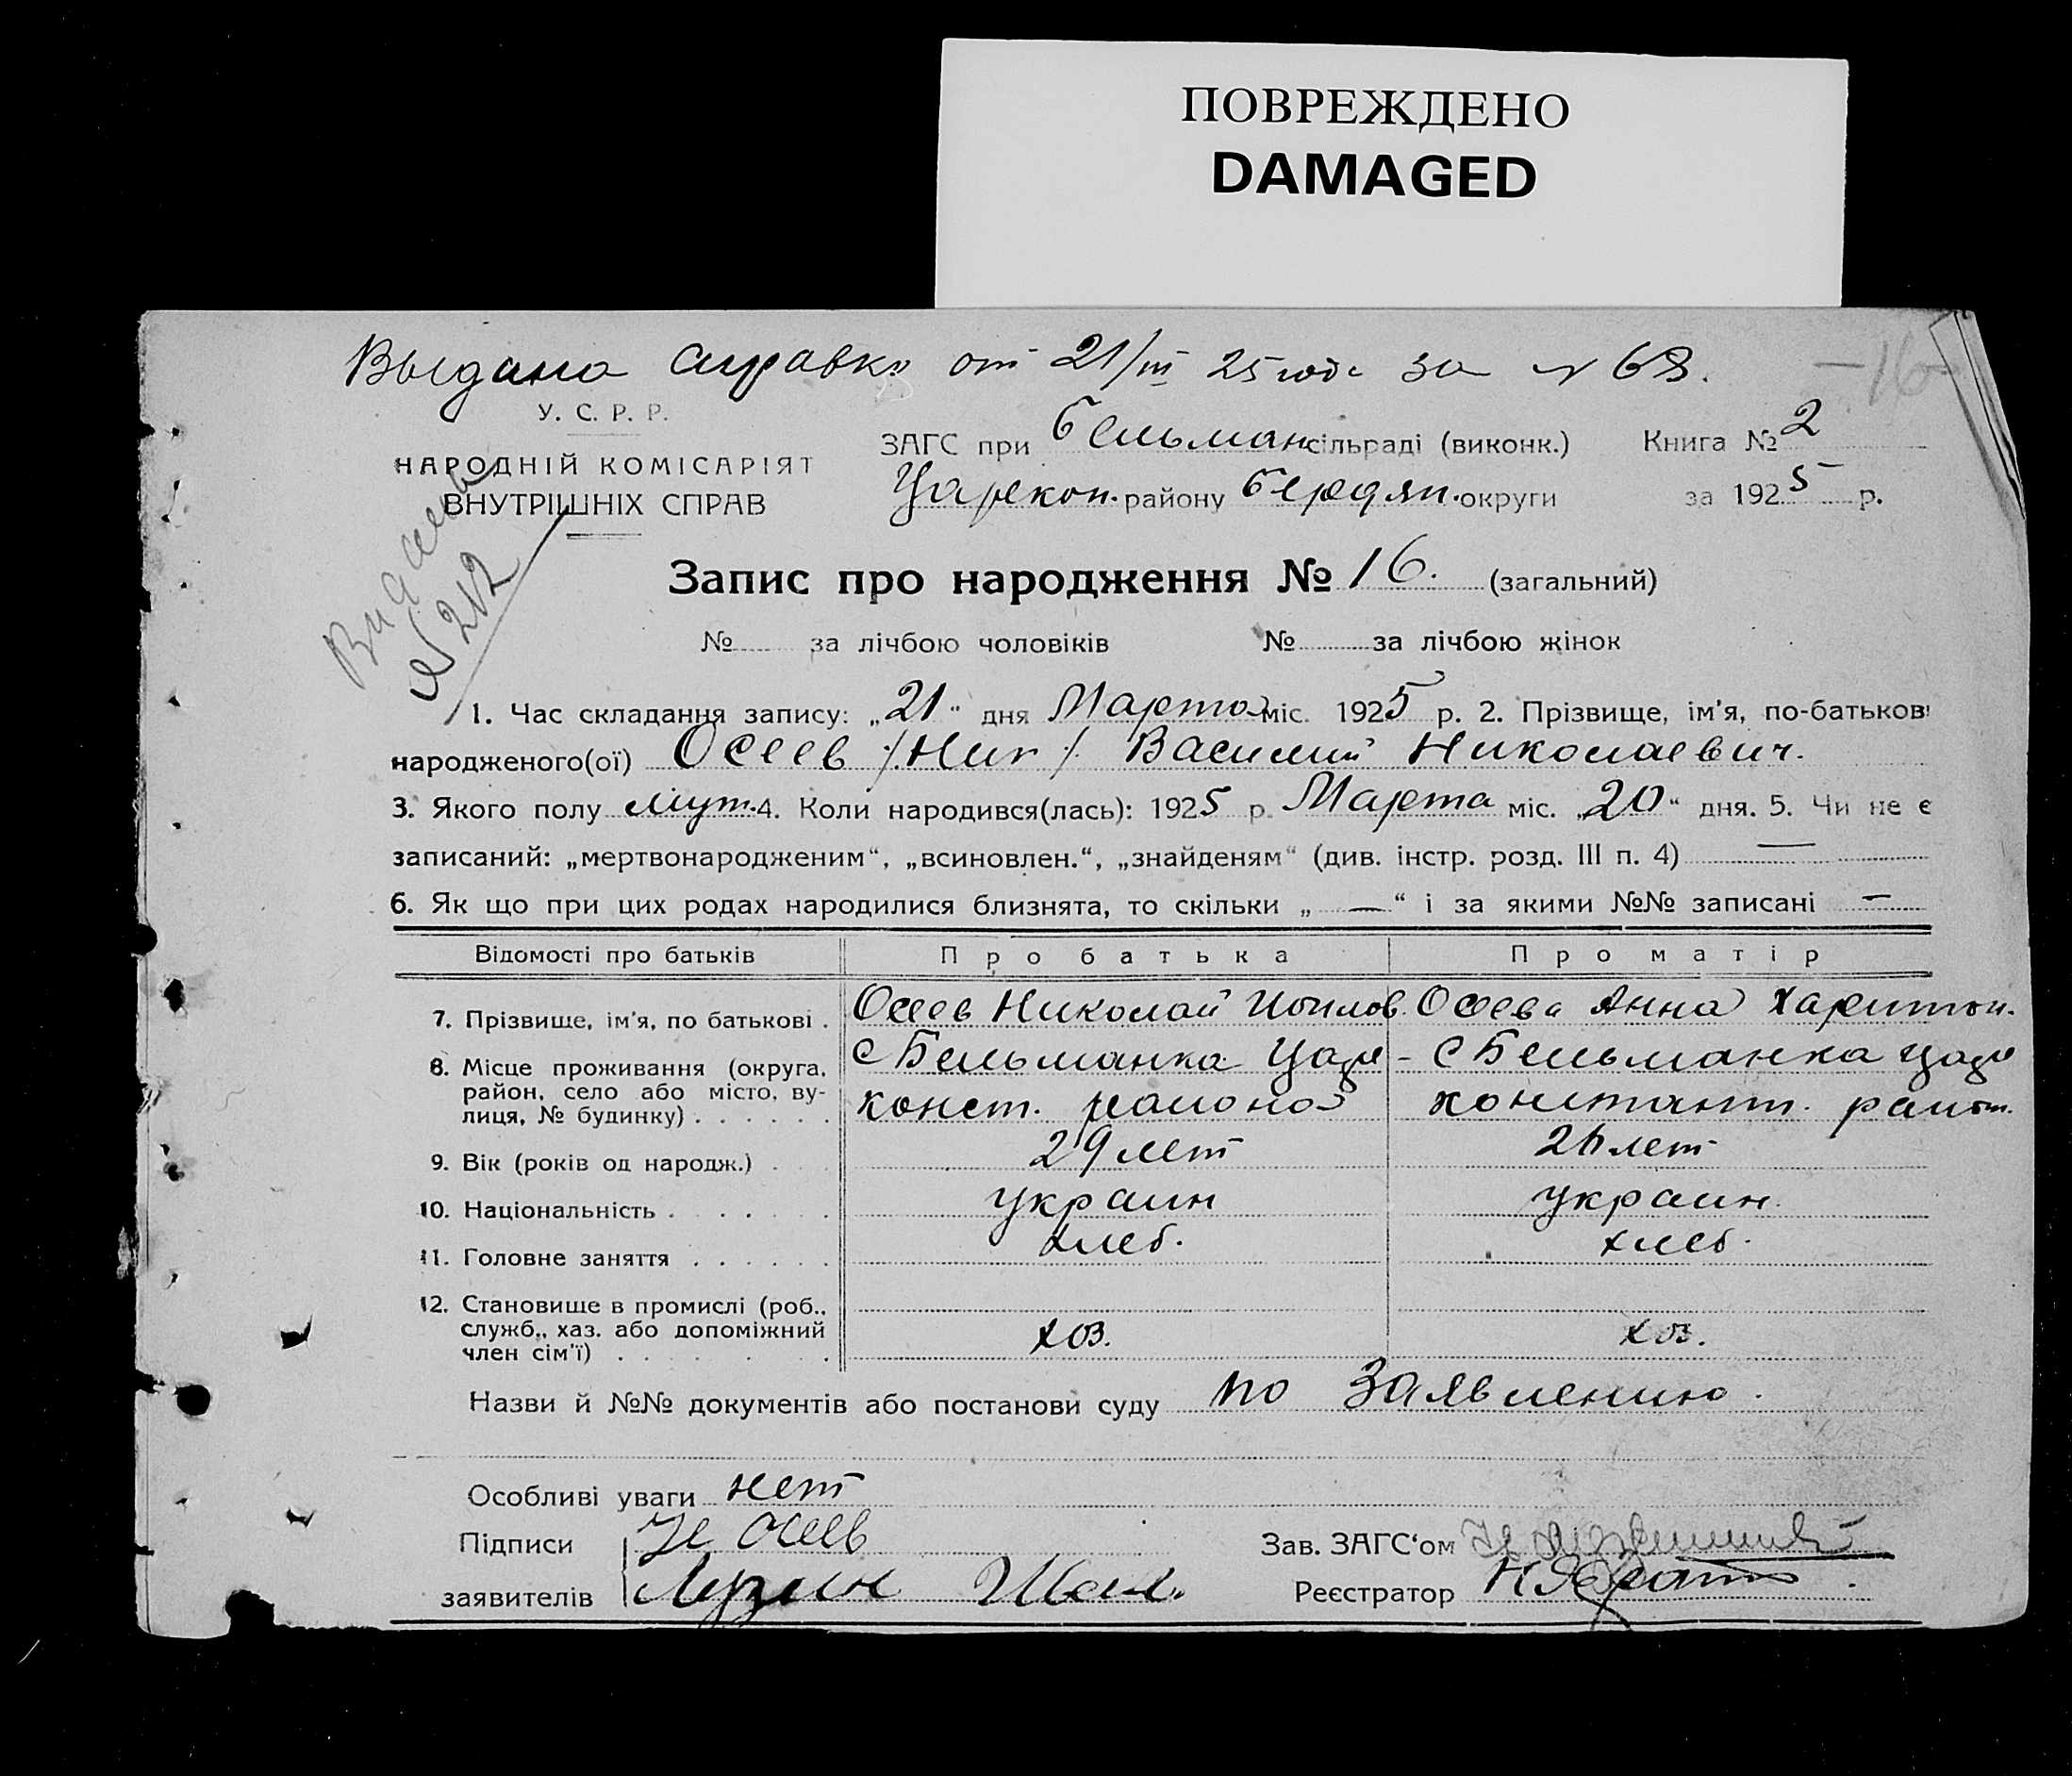 ПОВРЕЖДЕНО
DAMAGED
Выдана справка от 21/III 25 года за № 68.
У. С. Р. Р.
НАРОДНІЙ КОМІСАРІЯТ
ВНУТРІШНІХ СПРАВ
ЗАГС при Бельман сільраді (виконк.) Книга № 2
Царекон. району Бердян. округи за 1925 р.
№ 212
16
Запис про народження № 16. (загальний)
№ за лічбою чоловіків № за лічбою жінок
1. Час складання запису: „21“ дня Марта міс. 1925 р. 2. Прізвище, ім'я, по-батькові
народженого(ої) Осеев Василий Николаевич.
3. Якого полу муж. 4. Коли народився(лась): 1925 р. Марта міс. „20“ дня. 5. Чи не є
записаний: „мертвонародженим“, „всиновлен.“, „знайденям“ (див. інстр. розд. III п. 4) —
6. Як що при цих родах народилися близнята, то скільки „ — “ і за якими №№ записані —
Відомості про батьків Про батька Про матір
7. Прізвище, ім'я, по батькові . Осеев Николай Осеева Анна Харитон.
8. Місце проживання (округа, с Бельманка Царе- с Бельманка Царе
район, село або місто, ву-
лиця, № будинку) . . . . . . конст. района констант. район.
9. Вік (років од народж.) . 29 лет 26 лет
10. Національність . . . . . украин украин.
11. Головне заняття . . . . . . хлеб. хлеб.
12. Становище в промислі (роб.,
служб., хаз. або допоміжний хоз. хоз.
член сім'ї) . . . . . .
Назви й №№ документів або постанови суду по заявлению.
Особливі уваги нет
Підписи Н Осеев Зав. ЗАГС'ом
заявителів Реєстратор